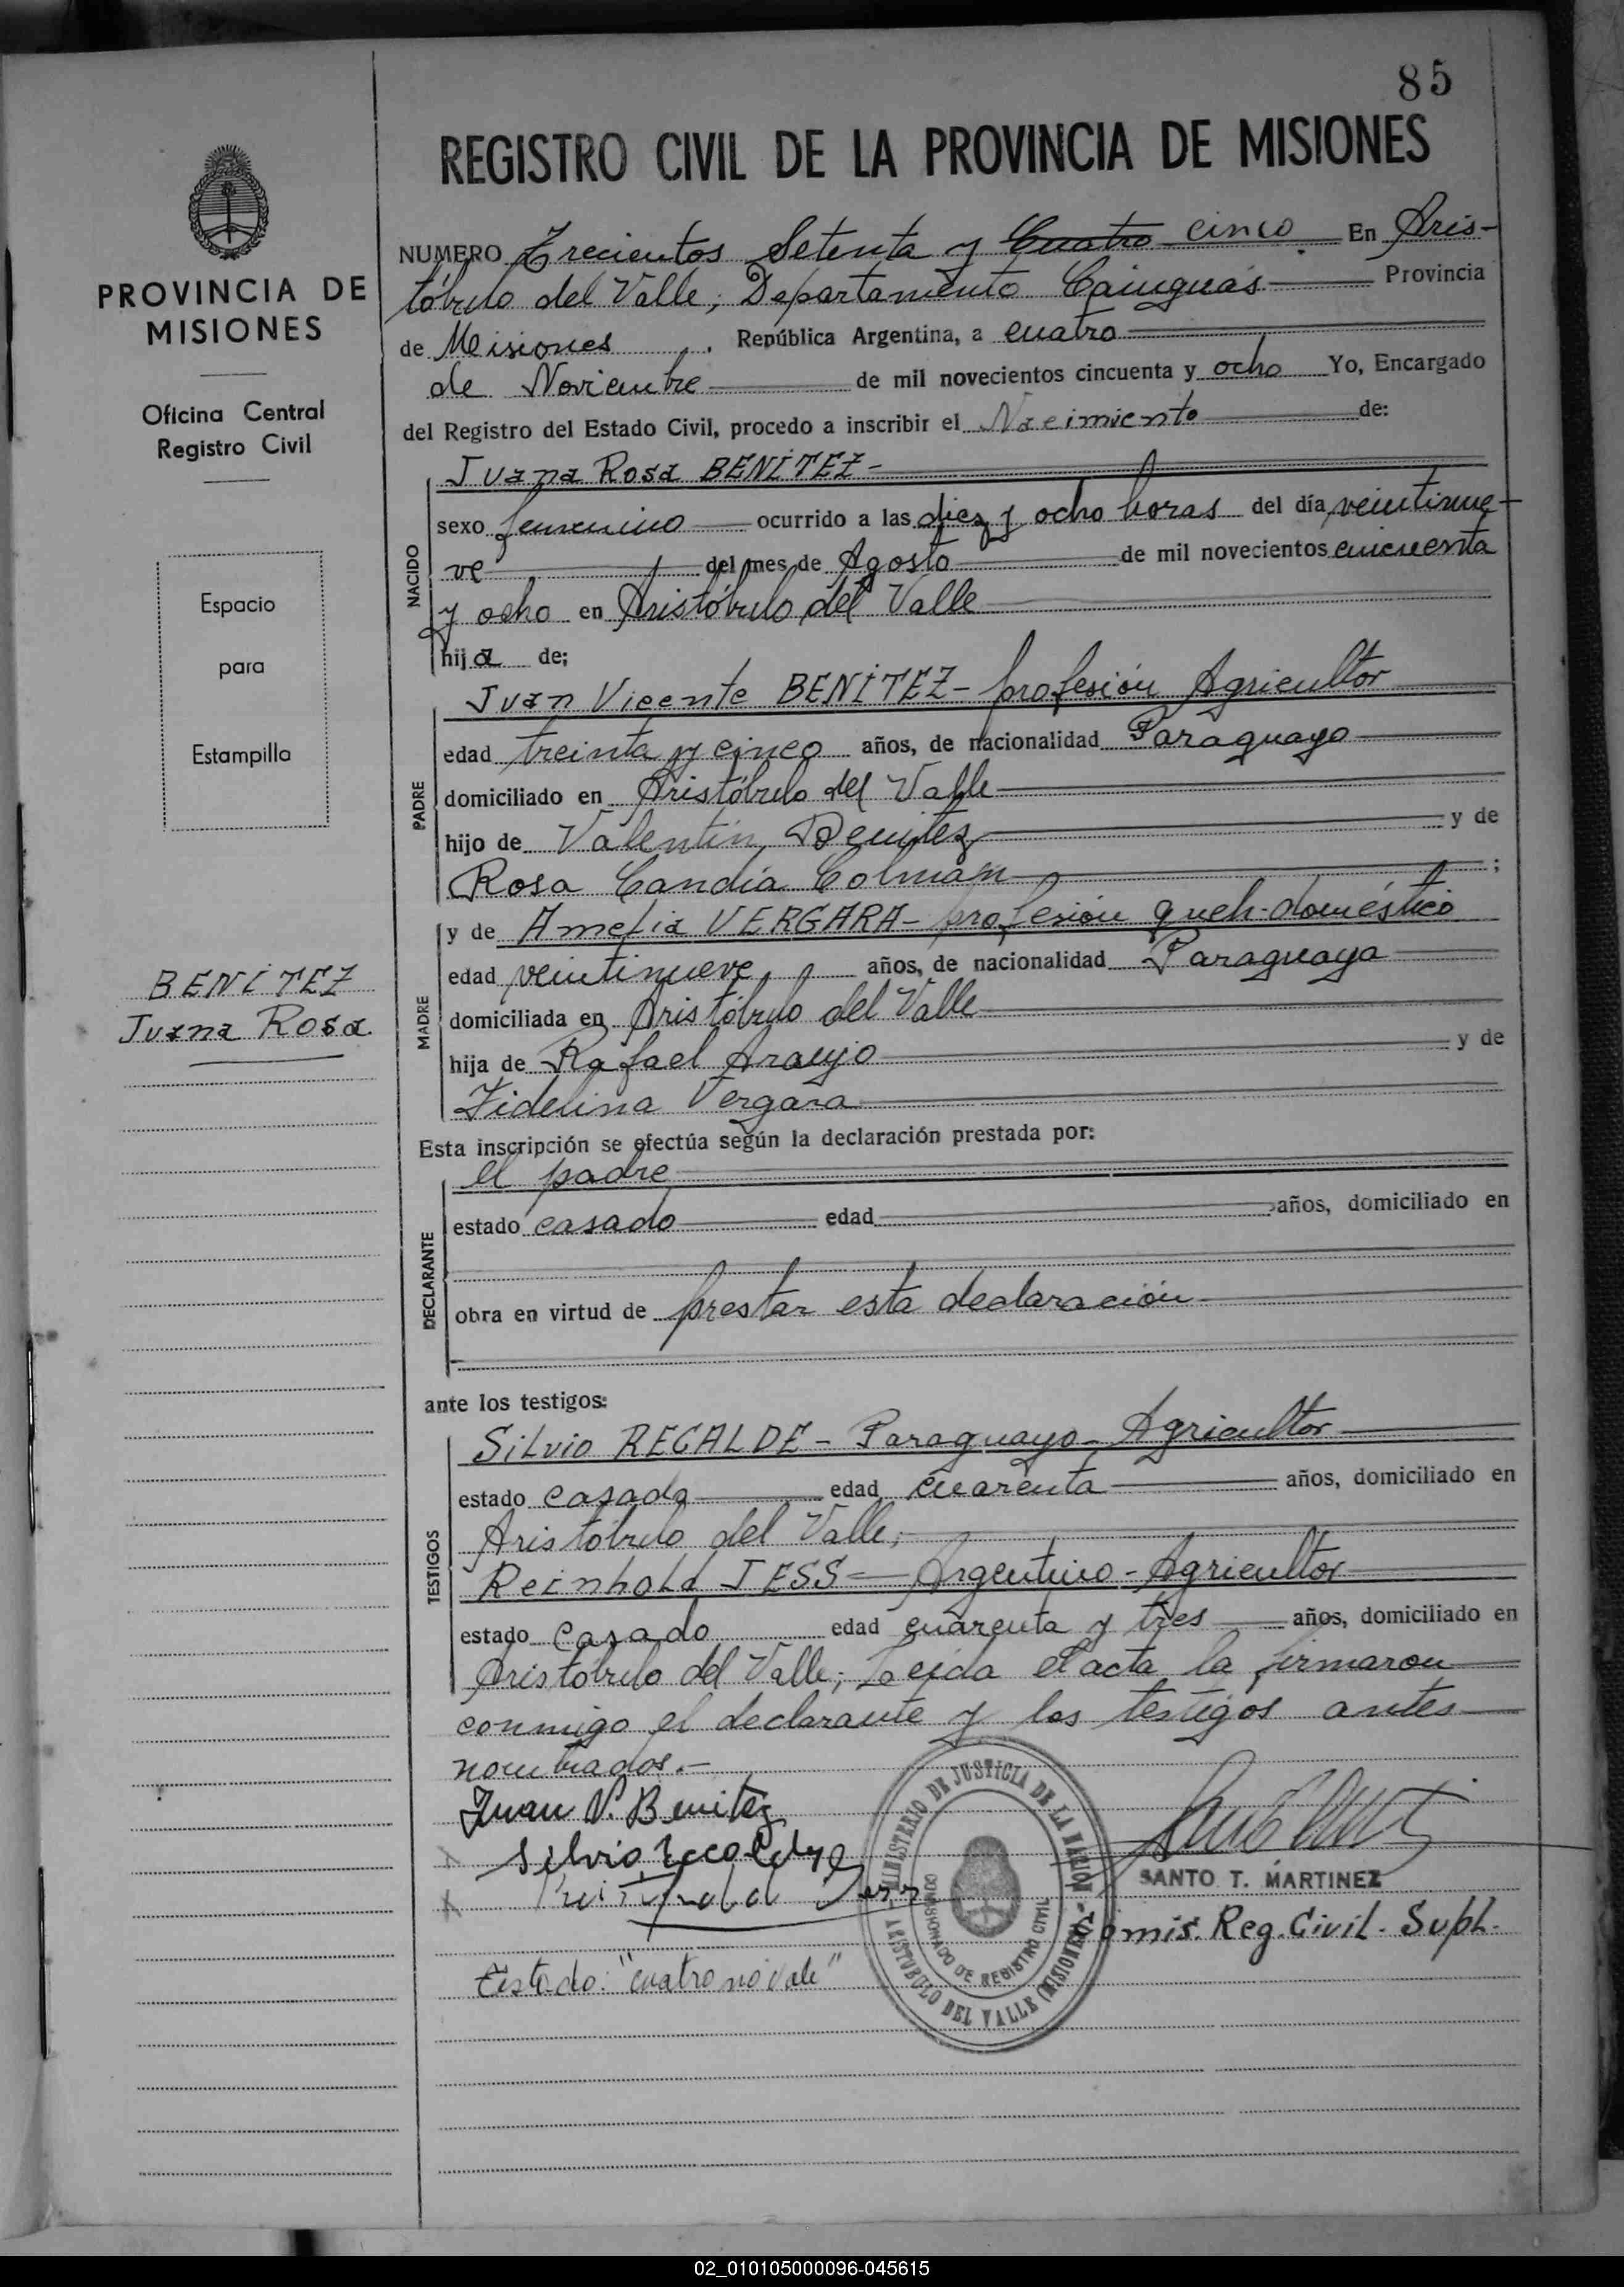 85
REGISTRO CIVIL DE LA PROVINCIA DE MISIONES
PROVINCIA DE
MISIONES
Oficina Central
Registro Civil
Espacio
para
Estampilla
BENÍTEZ
Juana Rosa
NUMERO Trecientos Setenta y Cuatro cinco. En Aris-
tóbulo del Valle, Departamento Cainguás Provincia
de Misiones, República Argentina, a cuatro
de Noviembre de mil novecientos cincuenta y ocho Yo, Encargado
del Registro del Estado Civil, procedo a inscribir el Nacimiento de:
NACIDO
Juana Rosa BENÍTEZ-
sexo femenino ocurrido a las diez y ocho horas del día veintinue-
ve del mes de Agosto de mil novecientos cincuenta
y ocho en Aristóbulo del Valle
hija de;
PADRE
Juan Vicente BENÍTEZ- profesión Agricultor
edad treinta y cinco años, de nacionalidad Paraguayo
domiciliado en Aristóbulo del Valle
hijo de Valentín Benítez y de
Rosa Candia Colmán ;
MADRE
y de Amelia VERGARA- profesión queh-doméstico
edad veintinueve años, de nacionalidad Paraguaya
domiciliada en Aristóbulo del Valle
hija de Rafael Araujo y de
Fidelina Vergara
Esta inscripción se efectúa según la declaración prestada por:
DECLARANTE
el padre
estado casado edad años, domiciliado en
obra en virtud de prestar esta declaración
ante los testigos:
TESTIGOS
Silvio RECALDE- Paraguayo- Agricultor
estado casado edad cuarenta años, domiciliado en
Aristóbulo del Valle;
Reinhold JESS- Argentino- Agricultor
estado casado edad cuarenta y tres años, domiciliado en
Aristóbulo del Valle; Leida el acta la firmaron
conmigo el declarante y los testigos antes
nombrados.-
Juan V. Benítez
Silvio Recalde
Reinhold Jess
SANTO T. MARTINEZ
Comis. Reg. Civil. Supl.
MINISTERIO DE JUSTICIA DE LA NACION
COMISIONADO DE REGISTRO CIVIL
ARISTOBULO DEL VALLE (MISIONES)
Testado: "cuatro no vale"
02_010105000096-045615